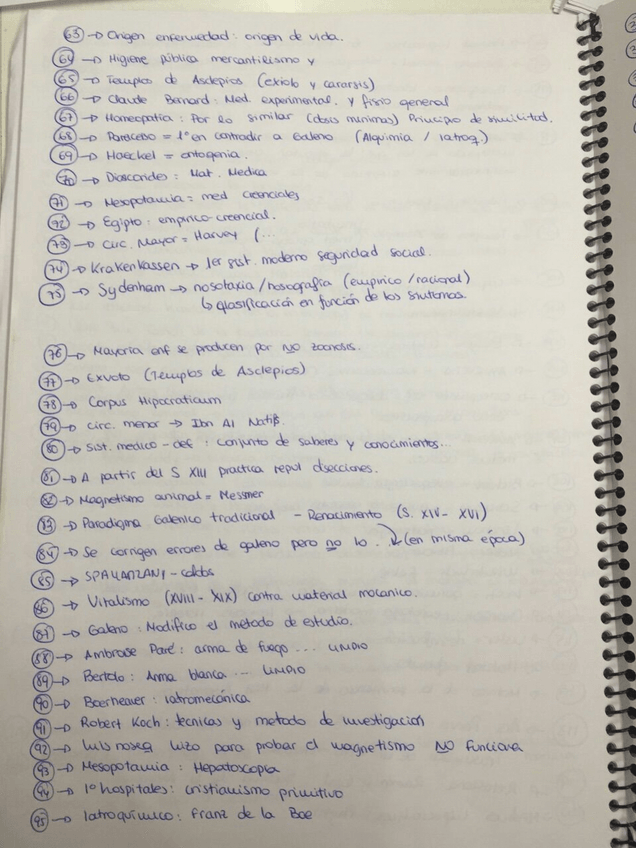 63 → Origen enfermedad: origen de vida.
64 → Higiene pública mercantilismo y
65 → Templos de Asclepios (exvoto y catarsis)
66 → Claude Bernard: Med. experimental. y fisio general
67 → Homeopatía: Por lo similar (dosis mínimas) Principio de similitud.
68 → Paracelso = 1º en contradir a Galeno (Alquimia / Iatroq.)
69 → Haeckel = ontogenia.
70 → Dioscorides: Mat. Medica
71 → Mesopotamia = med creenciales
72 → Egipto: empirico-creencial.
73 → Circ. Mayor = Harvey (...
74 → Krakenkassen → 1er sist. moderno seguridad social.
75 → Sydenham → nosotaxia / nosografia (empirico / racional)
↳ clasificación en función de los sintomas.
76 → Mayoria enf se producen por NO zoonosis.
77 → Exvoto (Templos de Asclepios)
78 → Corpus Hipocraticum
79 → circ. menor → Ibn Al Nafis.
80 → Sist. medico - def: conjunto de saberes y conocimientos...
81 → A partir del S XIII practica regul disecciones.
82 → Magnetismo animal = Messmer
83 → Paradigma Galenico tradicional - Renacimiento (S. XIV - XVI)
84 → Se corrigen errores de galeno pero no lo ... (en misma época)
85 → SPALLANZANI - caldos
86 → Vitalismo (XVIII - XIX) contra material mecanico.
87 → Galeno: Modifico el metodo de estudio.
88 → Ambrose Paré: arma de fuego ... LIMPIO
89 → Bertolo: Arma blanca ... LIMPIO
90 → Boerheaver: iatromecánica
91 → Robert Koch: tecnicas y metodo de investigacion
92 → Luis hizo para probar el magnetismo NO funciona
93 → Mesopotamia: Hepatoscopia
94 → 1º hospitales: cristianismo primitivo
95 → Iatroquimico: Franz de la Boe